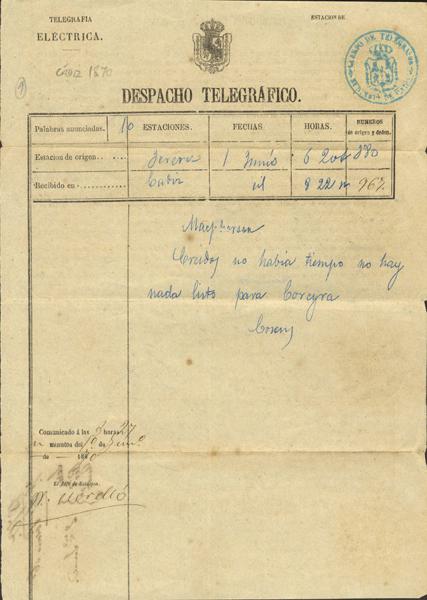 TELEGRAFÍA
ELÉCTRICA.
ESTACION DE
CUERPO DE TELEGRAFOS
Cádiz 1870
1
DESPACHO TELEGRÁFICO.
Palabras anunciadas. 10 ESTACIONES. FECHAS HORAS. NUMEROS de origen y orden.
Estacion de orígen. Jerez 1 Junio 6 20 380
Recibido en Cadiz id 8 22 967
Macpherson
Creidos no habia tiempo no hay
nada listo para Corcyra
Cosens
Comunicado á las 8 horas 27
minutos del 1º de Junio
de 1870
El Jefe de Estacion